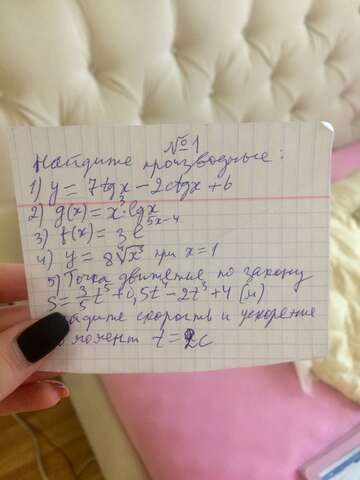 №1
Найдите производные:
1) y = 7tgx - 2ctgx + 6
2) g(x) = x³·lgx
3) f(x) = 3e^5x-4
4) y = 8∜x³ при x=1
5) Точка движется по закону
t⁵ + 0,5t⁴ - 2t³ + 4 (м)
скорость и ускорение
момент t = 2с